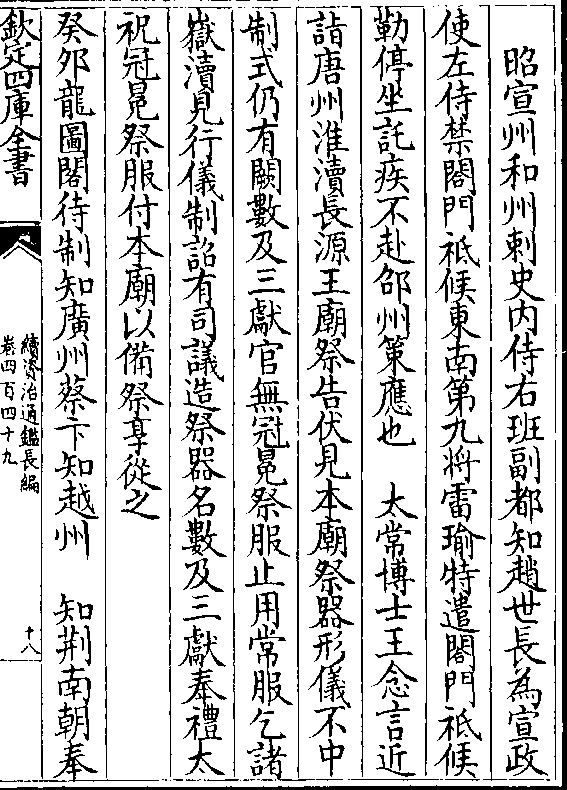 昭宣州和州刺史内侍右班副都知趙世長為宣政
使左侍禁閤門祗候東南第九将雷瑜特遣閤門祗候
勒停坐託疾不赴邵州策應也　太常博士王念言近
詣唐州淮瀆長源王廟祭告伏見本廟祭器形儀不中
制式仍有闕數及三獻官無冠冕祭服止用常服乞諸
嶽瀆見行儀制詔有司議造祭器名數及三獻奉禮太
祝冠冕祭服付本廟以備祭享從之
癸夘龍圖閣待制知廣州蔡卞知越州　知荆南朝奉
欽定四庫全書
續資治通鑑長編
卷四百四十九
十八